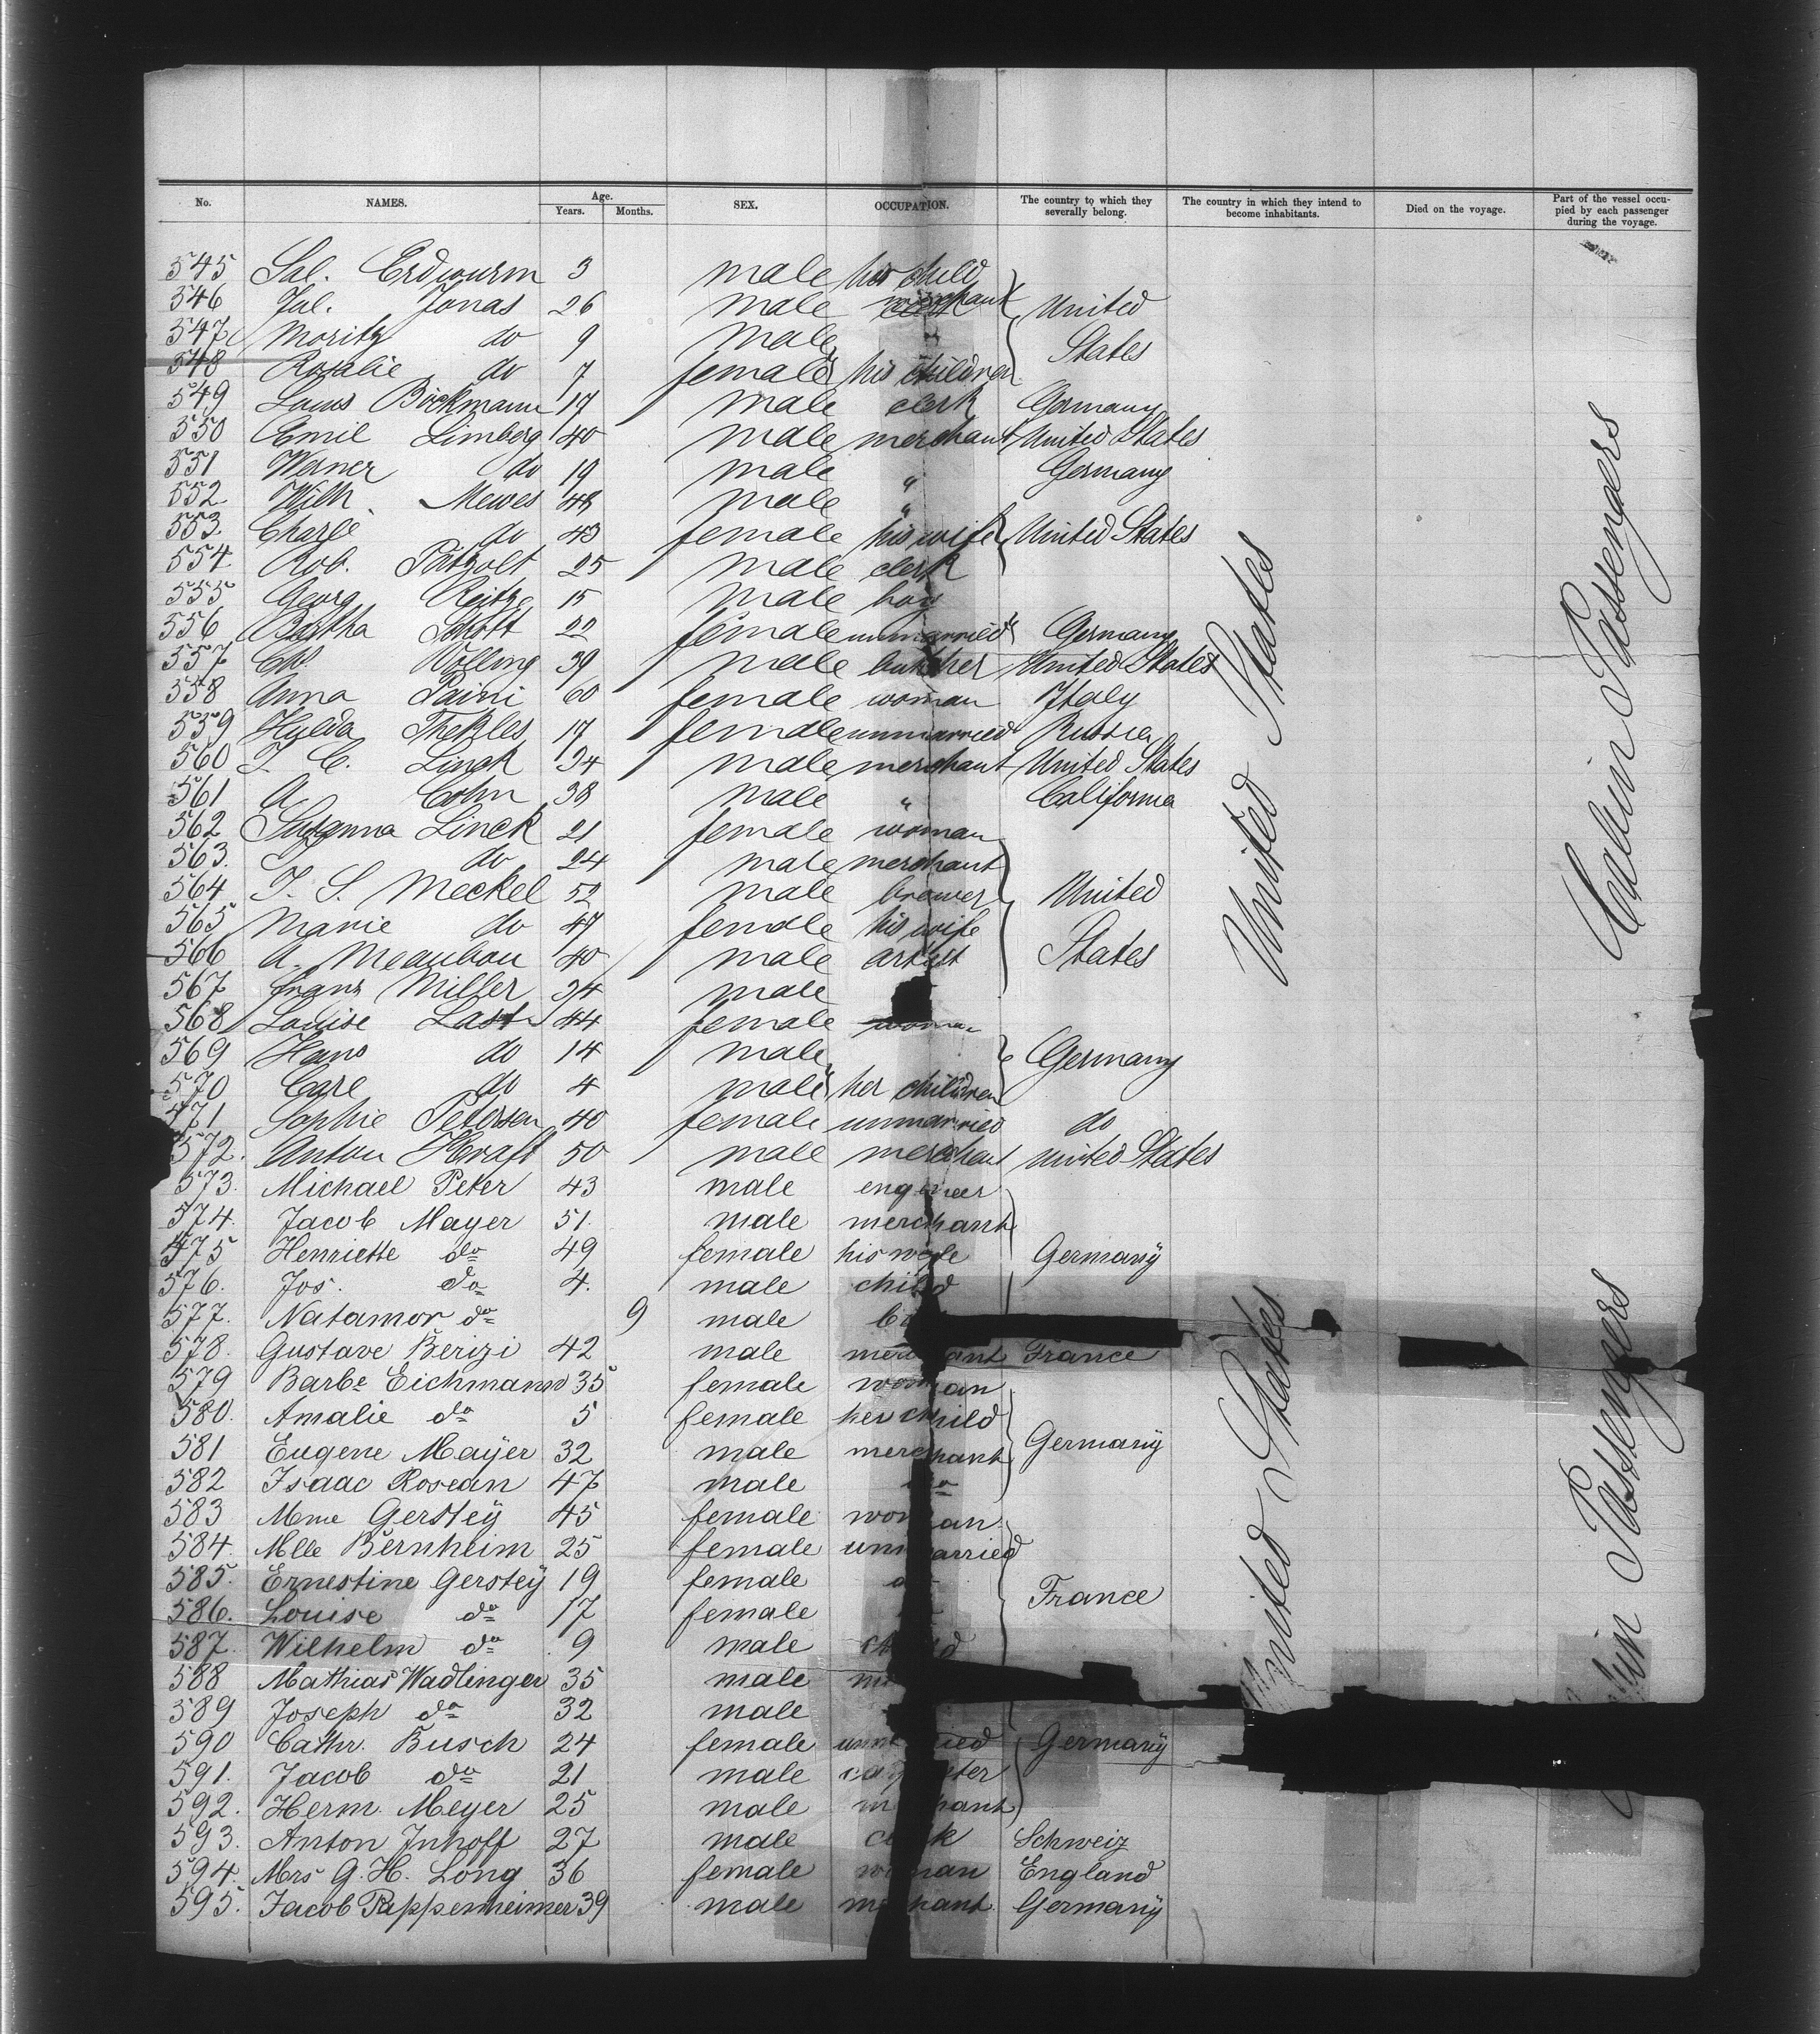 No. NAMES. Age. Years. Months. SEX. OCCUPATION. The country to which they severally belong. The country in which they intend to become inhabitants. Died on the voyage. Part of the vessel occupied by each passenger during the voyage.
545 Sal. Erdwurm 3 male his child
546 Jul. Jonas 26 male merchant United
547 Moritz do 9 male States
548 Rosalie do 7 female his children
549 Louis Böckmann 17 male clerk Germany
550 Emil Limberg 40 male merchant United States
551 Werner do 19 male " Germany
552 Wilh. Mewes 48 male "
553. Charle do 43 female his wife United States
554. Rob. Patzolt 25 male clerk
555 Georg Reitze 15 male boy
556 Bertha Schott 22 female unmarried Germany
557 Chr. Volling 39 male butcher United States
558 Anna Paini 60 female woman Italy
559 Hulda Thekles 17 female unmarried Russia
560 C. Linck 34 male merchant United States
561 A Cohn 38 male " California
562 Susanna Linck 21 female woman
563. do 24 male merchant
564. T. S. Meckel 52 male brewer United
565 Marie do 47 female his wife
566 A. Meaubau 40 male artist States
567 Franz Miller 34 male
568 Louise Last 44 female woman
569 Hans do 14 male Germany
570 Carl do 4 male her children
471 Sophie Petersen 40 female unmarried do
572. Anton Kraft 50 male merchant United States
573. Michael Peter 43 male engineer
574. Jacob Mayer 51. male merchant
575 Henriette do 49 female his wife Germany
576. Jos. do 4. male child
577. Natamor do 9 male
578. Gustave Berizi 42 male merchant France
579 Barbe Eichmann 35 female woman
580. Amalie do 5 female her child
581 Eugene Mayer 32 male merchant Germany
582 Isaac Rosean 47 male do
583 Mme Gerstey 45 female woman
584. Mlle Bernheim 25 female unmarried
585. Ernestine Gerstey 19 female
586. Louise do 17 female France
587. Wilhelm do 9 male child
588 Mathias Wadlinger 35 male
589 Joseph do 32 male
590 Cathr. Busch 24 female unmarried Germany
591. Jacob do 21 male
592. Herm. Meyer 25 male merchant
593. Anton Inhoff 27 male clerk Schweiz
594. Mrs G. H. Long 36 female woman England
595. Jacob Pappenheimer 39 male merchant Germany
United States
United States
Cabin Passengers
Cabin Passengers